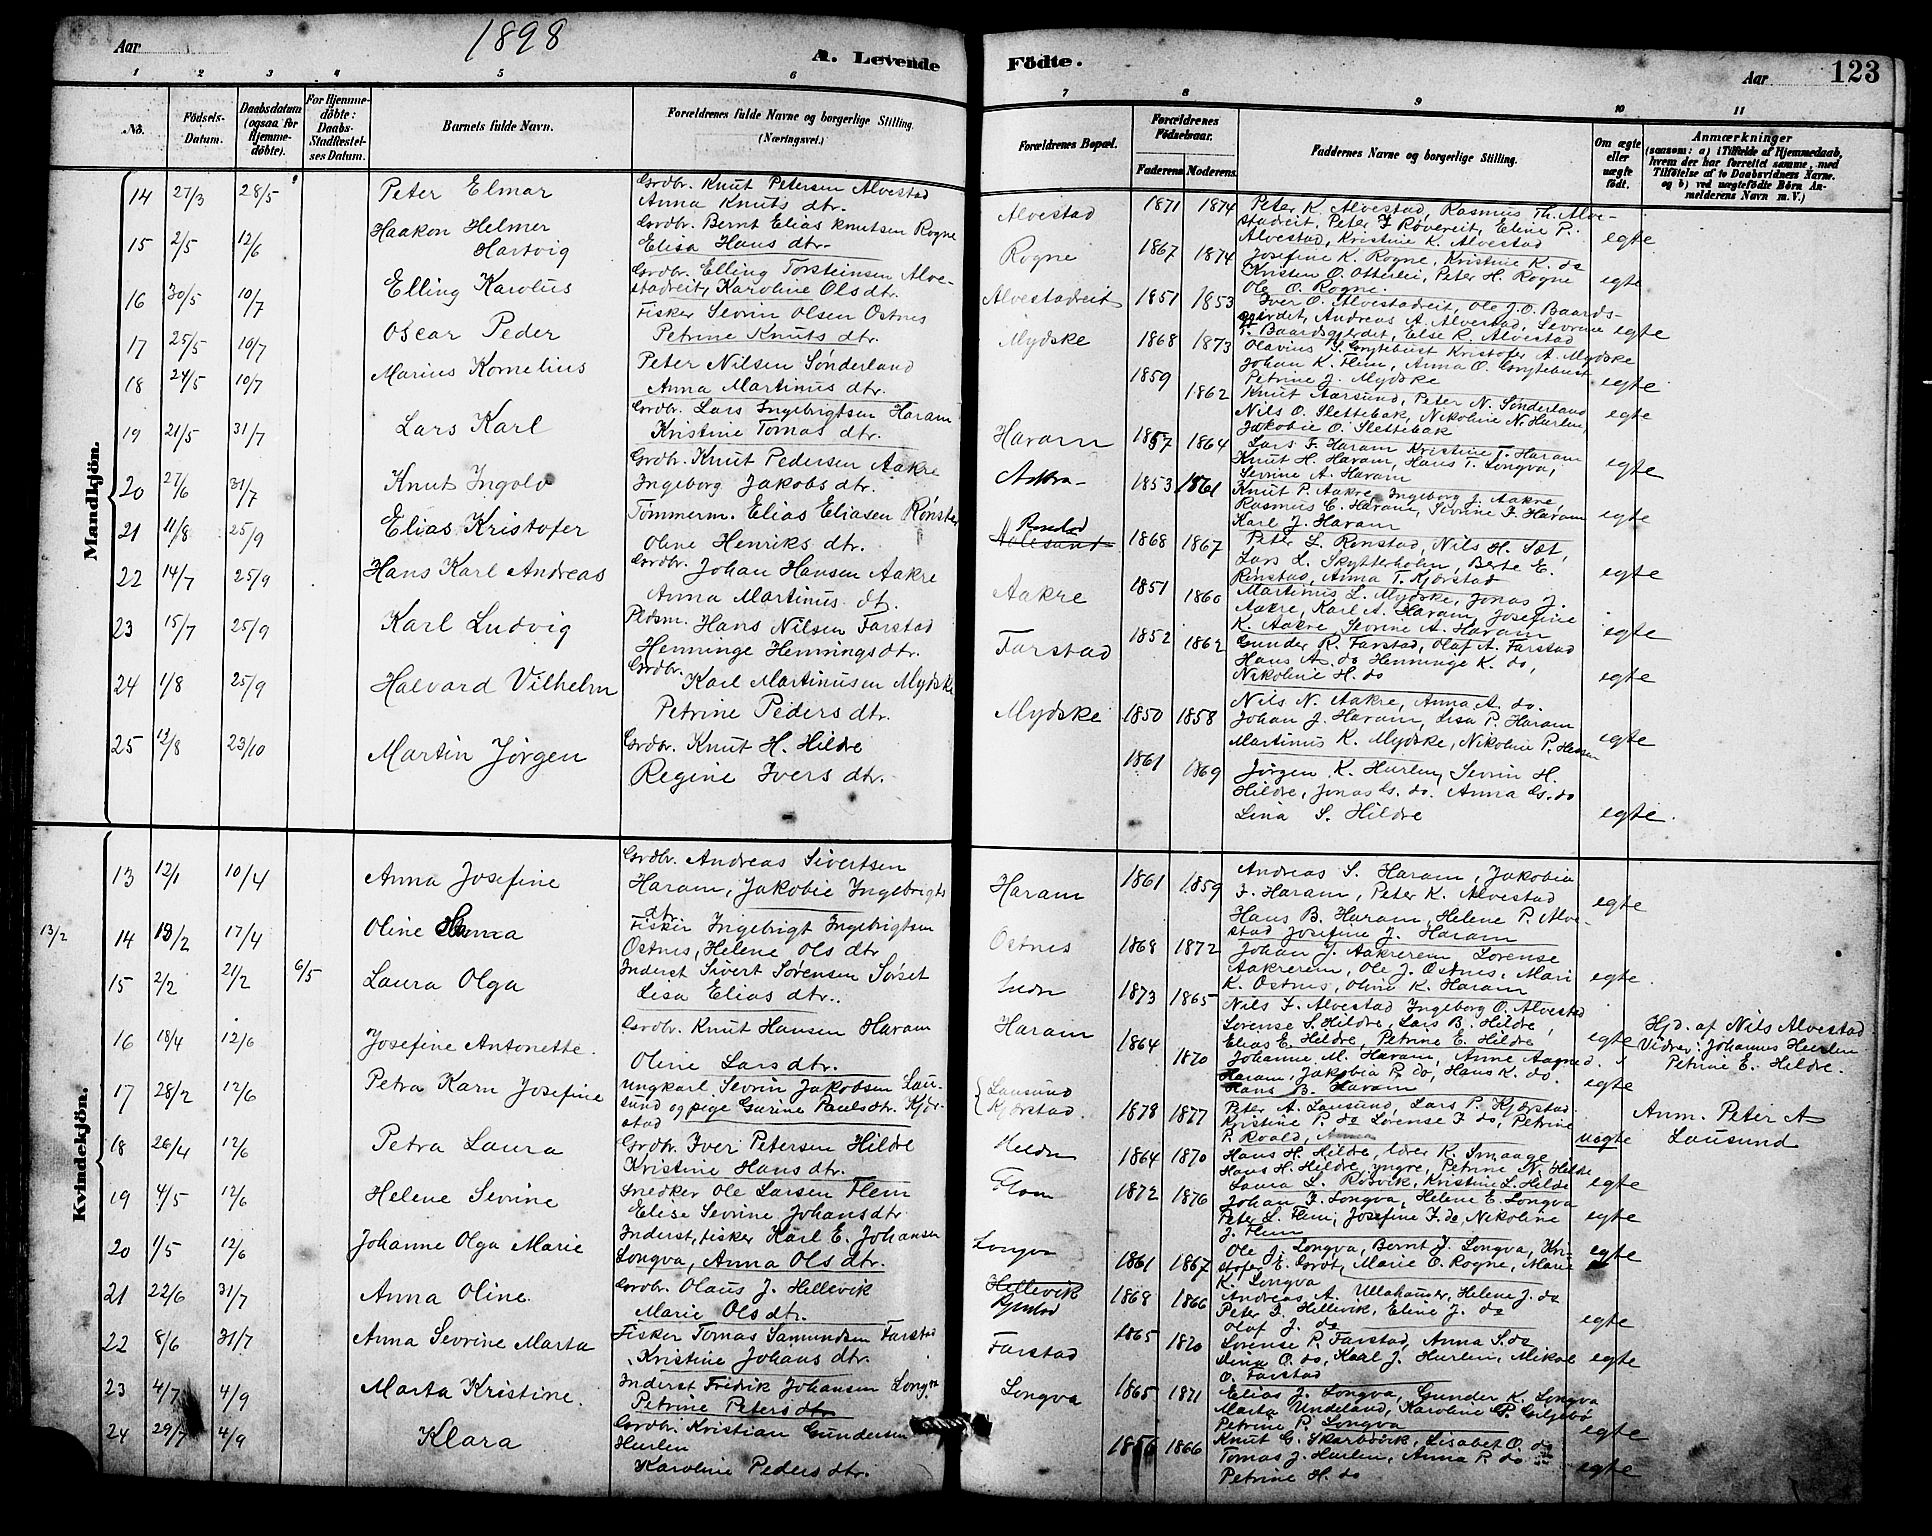 Aar
1898
A. Levende
Födte.
Aar
123
1 2 3 4 5 6
7 8 9 10 11
No.
Födsels-
Datum.
Daabsdatum
(ogsaa for
Hjemme-
döbte).
For Hjemme-
döbte:
Daabs-
Stadfæstel-
ses Datum.
Barnets fulde Navn.
Forældrenes fulde Navne og borgerlige Stilling.
(Næringsvei.)
Forældrenes Bopæl.
Forældrenes
Födselsaar.
Faderens Moderens.
Faddernes Navne og borgerlige Stilling.
Om ægte
eller
uægte
födt.
Anmærkninger
(saasom: a) i Tilfælde af Hjemmedaab,
hvem der har forrettet samme, med
Tilföielse af to Daabsvidners Navne.
og b) ved uægtefödte Börn An-
melderens Navn m. V.)
Mandkjön.
14 27/3 28/5 Peter Elmar
Grdbr. Knut Petersen Alvestad
Anna Knuts dtr.
Alvestad 1871 1874
Peter K. Alvestad, Rasmus Th. Alve-
stadreit, Peter J Røvereit, Eline P.
Alvestad, Kristine K. Alvestad
egte
15 2/5 12/6 Haakon Helmer
Hartvig
Grdbr. Bernt Elias Knutsen Rogne
Elisa Hans dtr.
Rogne 1867 1874
Josefine K. Rogne, Kristine K. do
Kristen O. Otterlei, Peter H. Rogne
Ole O. Rogne.
egte
16 30/5 10/7 Elling Karolus
Grdbr. Elling Torsteinsen Alve-
stadreit, Karoline Ols dtr.
Alvestadreit 1851 1853
Iver O. Alvestadreit, Ole J.O. Baards-
gjerdet, Andreas A. Alvestad, Sevrine
T. Baardsgjerdet, Else R. Alvestad
egte
17 25/5 10/7 Oscar Peder
Fisker Sevrin Olsen Ostnes
Petrine Knuts dtr.
Mydske 1868 1873
Olavius S. Grytebust Kristofer A. Mydske
Johan K. Flem, Anna O. Grytebust
Petrine J. Mydske
egte
18 24/5 10/7 Marius Kornelius
Peter Nilsen Sønderland
Anna Martinus dtr.
1859 1862
Knut Aarsund, Peter N. Sønderland
Nils O. Slettebak, Nikoline N. Hurlen,
Jakobie O. Slettebak
egte
19 21/5 31/7 Lars Karl
Grdbr. Lars Ingebrigtsen Haram
Kristine Tomas dtr.
Haram 1857 1864
Lars F. Haram Kristine T. Haram
Knut H. Haram, Hans T. Longva,
Sevrine A. Haram
egte
20 27/6 31/7 Knut Ingolv
Grdbr. Knut Pedersen Aakre
Ingeborg Jakobs dtr.
1853 1861
Knut P. Aakre, Ingeborg J. Aakre
Rasmus E. Haram, Sevrine F. Haram
Karl J. Haram
egte
21 11/8 25/9 Elias Kristofer
Tømmerm. Elias Eliasen Rønstad
Oline Henriks dtr.
Rønstad
Aalesund 1868 1867
Peter L. Rønstad, Nils H. Sæt,
Lars L. Skytterholm, Berte E.
Rønstad, Anna T. Kjærstad
egte
22 14/7 25/9 Hans Karl Andreas
Grdbr. Johan Hansen Aakre
Anna Martinus dtr.
Aakre 1851 1860
Martinus L. Mydske, Jonas J.
Aakre, Karl A. Haram, Josefine
K. Aakre, Sevrine A. Haram
egte
23 15/7 25/9 Karl Ludvig
Pldsm. Hans Nilsen Farstad
Henninge Hennings dtr.
Farstad 1852 1862
Gunder R. Farstad, Olaf A. Farstad
Hans A. do Henninge K. do,
Nikoline H. do
egte
24 1/8 25/9 Halvard Vilhelm
Grdbr. Karl Martinusen Mydske
Petrine Peders dtr.
Mydske 1850 1858
Nils N. Aakre, Anna A. do.
Johan J. Haram, Lisa P. Haram
Martinus K. Mydske, Nikoline P. Hessen
egte
25 13/8 23/10 Martin Jørgen
Grdbr. Knut H. Hildre
Regine Ivers dtr.
1861 1869
Jørgen K. Hurlen, Sevrin H.
Hildre, Jonas Gs. do. Anna Gs. do
Lina S. Hildre
egte
Kvindekjön.
13 12/1 10/4 Anna Josefine
Grdbr. Andreas Sivertsen
Haram, Jakobie Ingebrigts
dtr.
Haram 1861 1859
Andreas S. Haram, Jakobia
F. Haram, Peter K. Alvestad
Hans B. Haram, Helene P. Alve-
stad Josefine J. Haram
egte
13/2 14 13/2 17/4 Oline
Fisker Ingebrigt Ingebrigtsen
Ostnes, Helene Ols dtr
Ostnes 1868 1872
Johan J. Aakrerem Lorense
Aakrerem, Ole J. Ostnes, Mari
K. Ostnes, Oline K. Haram
egte
15 2/2 21/2 6/5 Laura Olga
Inderst Sivert Sørensen Sørset
Lisa Elias dtr.
1873 1865
Nils F. Alvestad Ingeborg O. Alvestad
Lorense S. Hildre, Lars B. Hildre,
Elias E. Hildre, Petrine E. Hildre
egte
Hjd. af Nils Alvestad
Vidner: Johannes Hurlen
Petrine E. Hildre.
16 18/4 12/6 Josefine Antonette.
Grdbr. Knut Hansen Haram
Oline Lars dtr.
Haram 1864 1870
Johanne M. Haram, Anne Aagned.
Haram, Jakobia P. do, Hans K. do.
Hans B. Haram
egte
17 28/2 12/6 Petra Karn Josefine
Ungkarl Sevrin Jakobsen Lau-
sund og pige Gurine Pauls dtr. Kjær-
stad
Lausund
Kjærstad. 1878 1877
Peter A. Lausund, Lars P. Kjærstad
Kristine P. do Lorense F do, Petrine
P. Roald,
uegte
Anm. Peter A
Lausund
18 26/4 12/6 Petra Laura
Grdbr. Iver Petersen Hildre
Kristine Hans dtr.
1864 1870
Hans H. Hildre, Iver K. Smaage,
Hans H. Hildre, yngre, Petrine N. Hildre
Laura L. Rørvik, Kristine L. Hildre
egte
19 4/5 12/6 Helene Sevrine
Snedker Ole Larsen Flem
Elise Sevrine Johans dtr
Flem 1872 1876
Johan F. Longva, Helene E. Longva
Peter L. Flem, Josefine F. do, Nikoline
J. Flem
egte
20 1/5 12/6 Johanne Olga Marie
Inderst, fisker Karl E. Johansen
Longva, Anna Ols dtr.
Longva 1861 1867
Ole J. Longva, Bernt J. Longva, Kri-
stofer E. Grøt, Marie O. Rogne, Marie
K. Longva
egte
21 22/6 31/7 Anna Oline.
Grdbr. Olaus J. Hellevik
Marie Ols dtr.
Hellevik
1868 1866
Andreas A. Ullahauser, Helene J. do
Peter F. Hellevik, Eline J. do
Olaf J. do
egte
22 8/6 31/7 Anna Sevrine Marta
Fisker Tomas Samundsen Farstad
Kristine Johans dtr.
Farstad 1865 1870
Lorense P. Farstad, Anna S. do
Lina O. do, Karl J. Hurlen, Mikal
O. Farstad
egte
23 4/7 4/9 Marta Kristine.
Inderst Fredrik Johansen Longva
Petrine Peters dtr
Longva 1865 1871
Elias J. Longva, Gunder K. Longva
Marta Undeland, Karoline P. Giljebø
Petrine P. Longva
egte
24 29/7 4/9 Klara
Grdbr. Kristian Gundersen
Hurlen
Karoline Peders dtr.
1856 1866
Knut G. Skarbøvik, Lisabet O. do
Tomas J. Hurlen, Anna P. do
Petrine H. do
egte